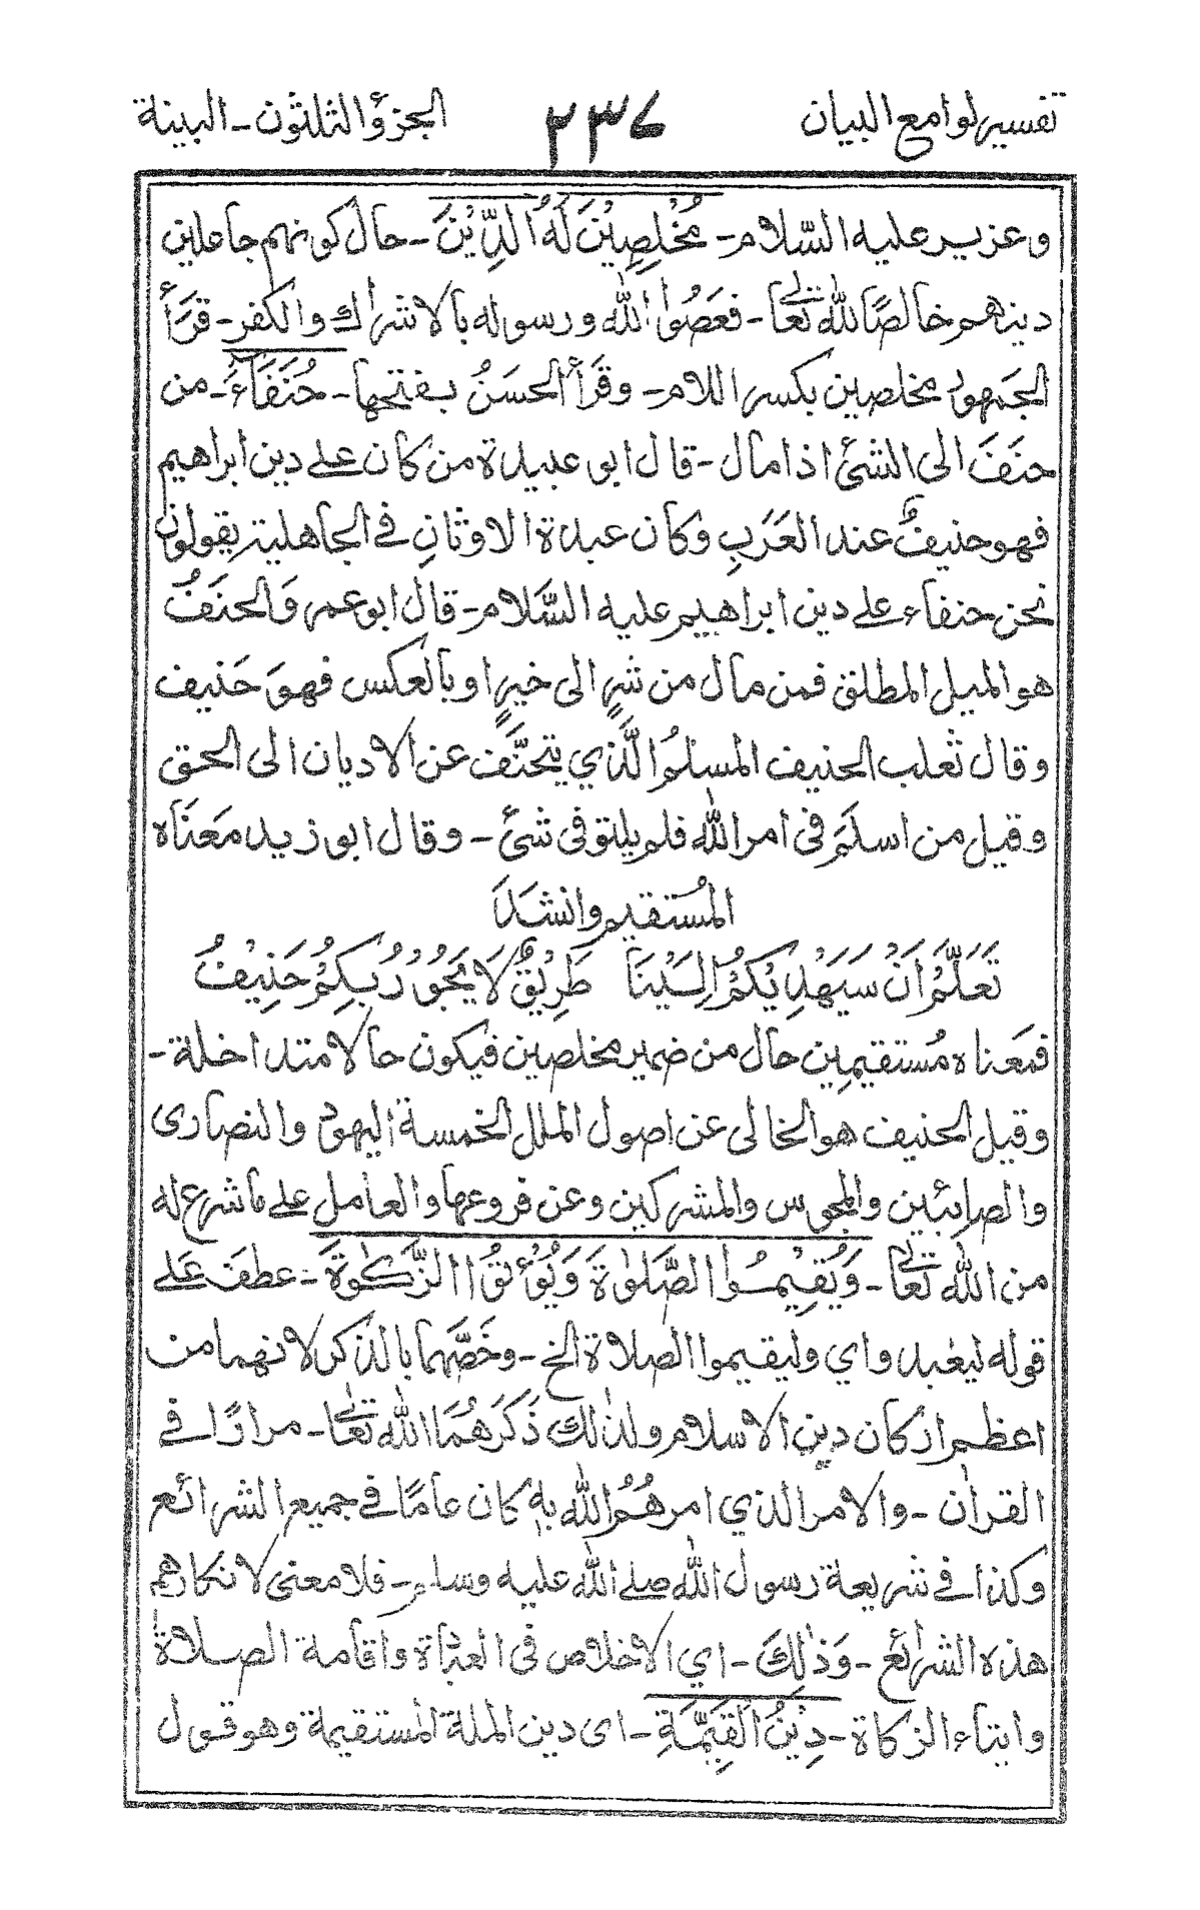 تفسير لوامع البيان ٢٣٧ الجزؤ الثلثون ـ البينة
وعزير عليه السّلام ـ مُخْلِصِيْنَ لَهُ الدِّيْنَ ـ حال كونهم جاعلين
دينهم خالصًا لله تعالى ـ فعَصُوا الله ورسوله بالاشراك والكفر ـ قرَأَ
الجمهورُ مخلصين بكسر اللام ـ وقَرَأَ الحسَنُ بفتحها ـ حُنَفَاءَ ـ من
حنَفَ الى الشئ اذا مال ـ قال ابو عبيدة من كان على دين ابراهيم
فهو حنيفٌ عند العَرَبِ وكان عبدة الاوثانِ في الجاهلية يقولون
نحن حنفاء على دين ابراهيم عليه السَّلام ـ قال ابو عمر وَالحنَفُ
هو الميل المطلق فمن مال من شرٍ الى خيرٍ او بالعكس فهوَ حَنيف
وقال ثعلب الحنيف المسلمُ الَّذي يتحَنَّف عن الاديان الى الحق
وقيل من اسلَمَ في امر الله فلم يلتو في شئ ـ وقال ابو زيد معَنَاه
المُستقيم وانشَدَ
تَعَلَّمْ اَنْ سَيَهْدِيْكُمْ اِلَيْنَا طَرِيْقٌ لَا يَجُوْرُ بِكُمْ حَنِيْفُ
فمَعناه مُستقيمِين حال من ضمير مخلصين فيكون حالا متداخلة ـ
وقيل الحنيف هو الخالى عن اصول الملل الخمسة اليهود والنصارى
والصابِئين والمجوس والمشركين وعن فروعها والعامل على ما شرع له
من الله تعالى ـ وَيُقِيْمُوا الصَّلوٰةَ وَيُؤْتُوا الزَّكٰوةَ ـ عطفَ عَلى
قوله ليعبدوا اي وليقيموا الصلاة الخ ـ وخَصَّهما بالذكر لانهما من
اعظم اركان دين الاسلام ولذلك ذَكَرَهُمَا الله تعالى ـ مرارًا في
القرآن ـ والامر الذي امرهُمُ الله به كان عامًا في جميع الشرائع
وكذا في شريعة رسول الله صلى الله عليه وسلم ـ فلا معنى لانكارهم
هذه الشرائع ـ وَذٰلِكَ ـ اي الاخلاص في العبادة واقامة الصلاة
وايتاء الزكاة ـ دِيْنُ الْقَيِّمَةِ ـ اى دين الملة المستقيمة وهو قول